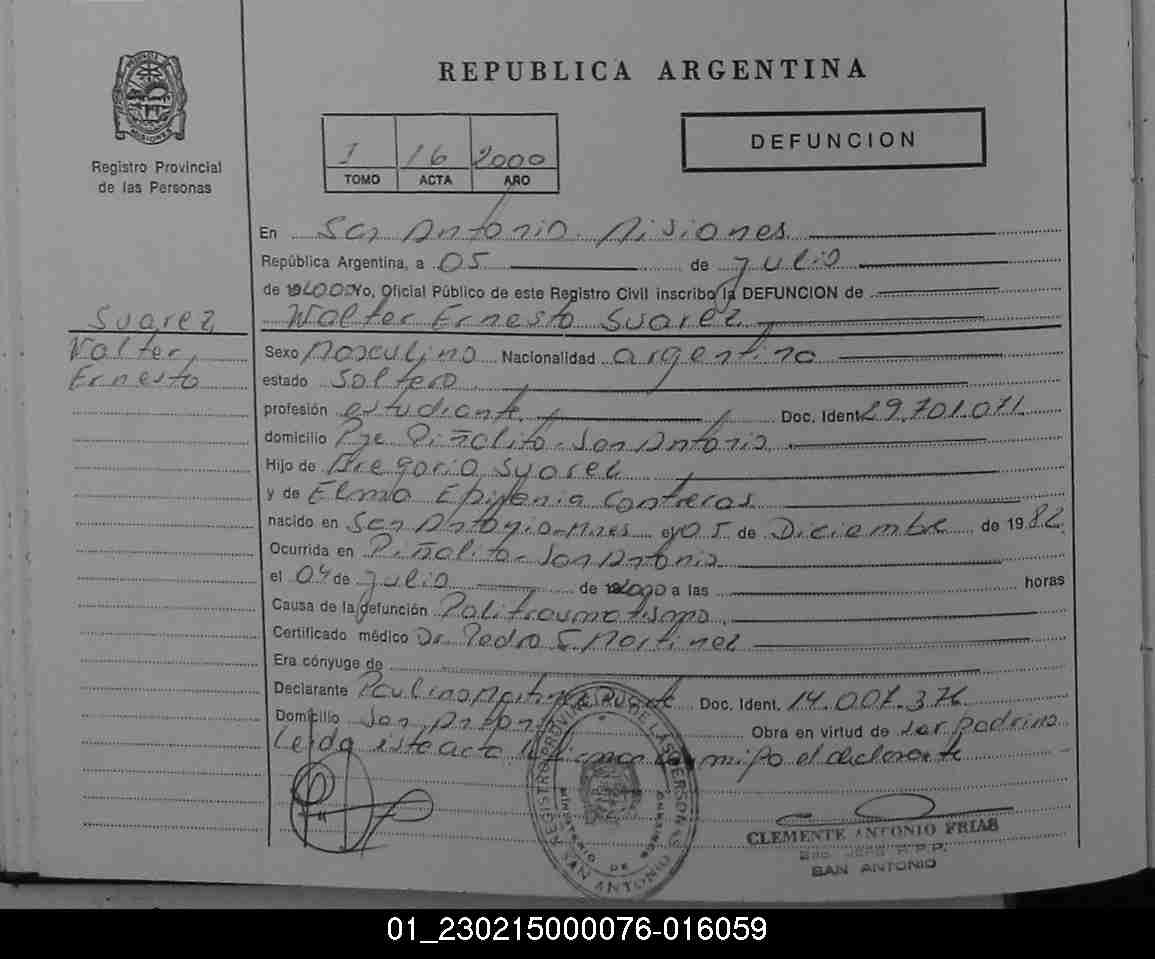 REPUBLICA ARGENTINA
Registro Provincial
de las Personas
1 16 2000
TOMO ACTA AÑO
DEFUNCION
En San Antonio Misiones
República Argentina, a 05 de Julio
de 2000 Yo, Oficial Público de este Registro Civil inscribo la DEFUNCION de
Walter Ernesto Suarez
Suarez
Walter
Ernesto
Sexo Masculino Nacionalidad argentino
estado Soltero
profesión estudiante Doc. Ident. 29.701.071
domicilio Pje Piñalito - San Antonio
Hijo de Gregorio Suarez
y de Elma Epifenia Contreras
nacido en San Antonio - Mnes el 05 de Diciembre de 1982
Ocurrida en Piñalito - San Antonio
el 04 de Julio de 2000 a las horas
Causa de la defunción Politraumatismo
Certificado médico Dr. Pedro E Martinez
Era cónyuge de
Declarante Paulino Doc. Ident. 14.007.376
Domicilio San Antonio Obra en virtud de ser padrino
Leida este acta la firman conmigo el declarante
REGISTRO PROVINCIAL DE LAS PERSONAS
MINISTERIO DE GOBIERNO
SAN ANTONIO
CLEMENTE ANTONIO FRIAS
R.P.P.
SAN ANTONIO
01_230215000076-016059